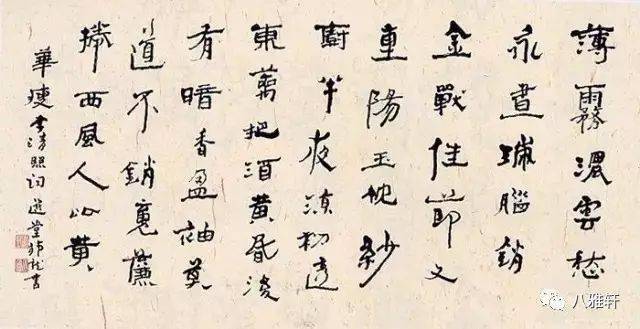 薄霧濃雲愁
永晝瑞腦銷
金獸佳節又
重陽玉枕紗
廚半夜涼初透
東籬把酒黃昏後
有暗香盈袖莫
道不銷魂簾
捲西風人比黃
華瘦 李清照詞 選堂 書
八雅轩